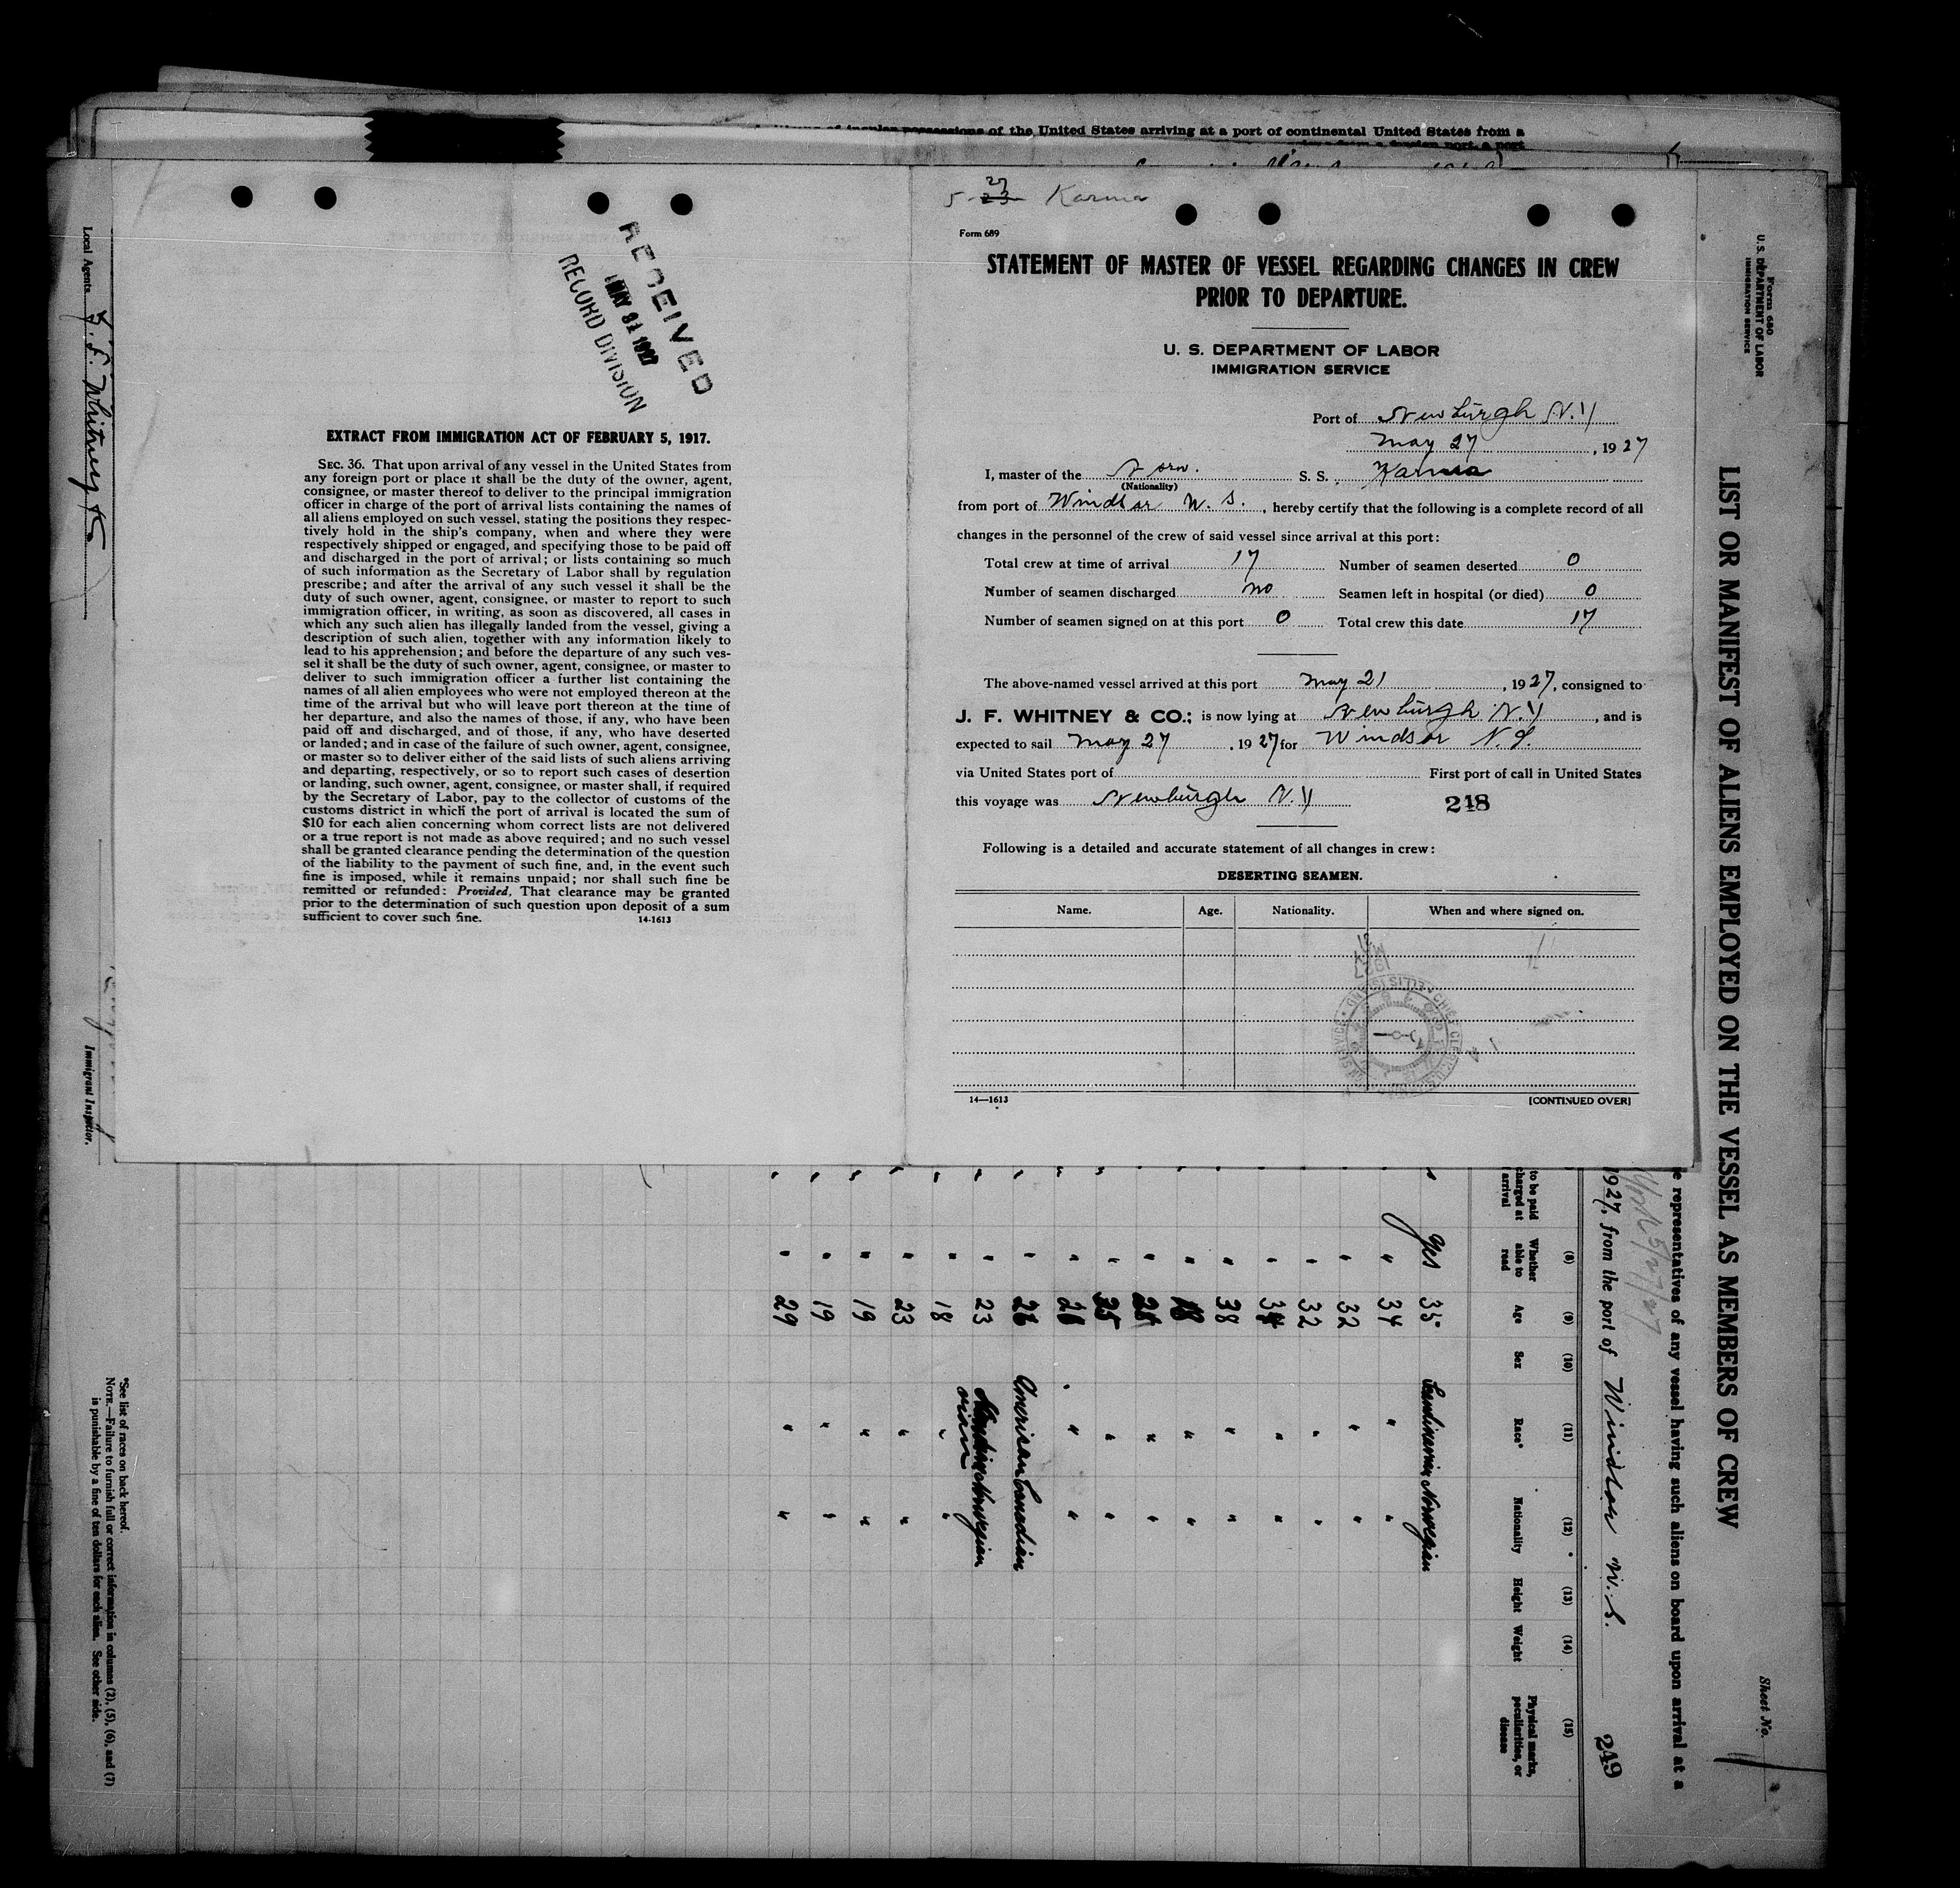 of insular possessions of the United States arriving at a port of continental United States from a
5-23 27 Karma
Form 689
STATEMENT OF MASTER OF VESSEL REGARDING CHANGES IN CREW
PRIOR TO DEPARTURE.
U. S. DEPARTMENT OF LABOR
IMMIGRATION SERVICE
Port of Newburgh N.Y
May 27, 1927
I, master of the Norw. S. S. Karma
(Nationality)
from port of Windsor N. S., hereby certify that the following is a complete record of all
changes in the personnel of the crew of said vessel since arrival at this port:
Total crew at time of arrival 17 Number of seamen deserted 0
Number of seamen discharged no Seamen left in hospital (or died) 0
Number of seamen signed on at this port 0 Total crew this date 17
The above-named vessel arrived at this port May 21, 1927, consigned to
J. F. WHITNEY & CO.; is now lying at Newburgh N.Y, and is
expected to sail May 27, 1927 for Windsor N.S.
via United States port of First port of call in United States
this voyage was Newburgh N.Y 218
Following is a detailed and accurate statement of all changes in crew:
DESERTING SEAMEN.
Name. Age. Nationality. When and where signed on.
14—1613 [CONTINUED OVER]
RECEIVED
MAY 31 1927
RECORD DIVISION
EXTRACT FROM IMMIGRATION ACT OF FEBRUARY 5, 1917.
SEC. 36. That upon arrival of any vessel in the United States from
any foreign port or place it shall be the duty of the owner, agent,
consignee, or master thereof to deliver to the principal immigration
officer in charge of the port of arrival lists containing the names of
all aliens employed on such vessel, stating the positions they respec-
tively hold in the ship's company, when and where they were
respectively shipped or engaged, and specifying those to be paid off
and discharged in the port of arrival; or lists containing so much
of such information as the Secretary of Labor shall by regulation
prescribe; and after the arrival of any such vessel it shall be the
duty of such owner, agent, consignee, or master to report to such
immigration officer, in writing, as soon as discovered, all cases in
which any such alien has illegally landed from the vessel, giving a
description of such alien, together with any information likely to
lead to his apprehension; and before the departure of any such ves-
sel it shall be the duty of such owner, agent, consignee, or master to
deliver to such immigration officer a further list containing the
names of all alien employees who were not employed thereon at the
time of the arrival but who will leave port thereon at the time of
her departure, and also the names of those, if any, who have been
paid off and discharged, and of those, if any, who have deserted
or landed; and in case of the failure of such owner, agent, consignee,
or master so to deliver either of the said lists of such aliens arriving
and departing, respectively, or so to report such cases of desertion
or landing, such owner, agent, consignee, or master shall, if required
by the Secretary of Labor, pay to the collector of customs of the
customs district in which the port of arrival is located the sum of
$10 for each alien concerning whom correct lists are not delivered
or a true report is not made as above required; and no such vessel
shall be granted clearance pending the determination of the question
of the liability to the payment of such fine, and, in the event such
fine is imposed, while it remains unpaid; nor shall such fine be
remitted or refunded: Provided, That clearance may be granted
prior to the determination of such question upon deposit of a sum
sufficient to cover such fine. 14-1613
Form 680
U. S. DEPARTMENT OF LABOR
IMMIGRATION SERVICE
Sheet No. 1
LIST OR MANIFEST OF ALIENS EMPLOYED ON THE VESSEL AS MEMBERS OF CREW
representatives of any vessel having such aliens on board upon arrival at a
York 5/27/27
1927, from the port of Windsor N.S. 249
(8) (9) (10) (11) (12) (13) (14) (15)
to be paid charged at arrival Whether able to read Age Sex Race* Nationality Height Weight Physical marks, peculiarities, or disease
Yes 35 Scandinavian Norwegian
" 34 " "
" 32 " "
" 32 " "
" 34 " "
" 38 " "
" 18 " "
" " "
" 25 " "
" " "
" American Canadian
" 23 Scandinavian Norwegian
" 18 " "
" 23 " "
" 19 " "
" 19 " "
" 29 " "
*See list of races on back hereof.
NOTE.—Failure to furnish full or correct information in columns (2), (5), (6), and (7)
is punishable by a fine of ten dollars for each alien. See other side.
Local Agents J. F. Whitney & Co
Immigrant Inspector.